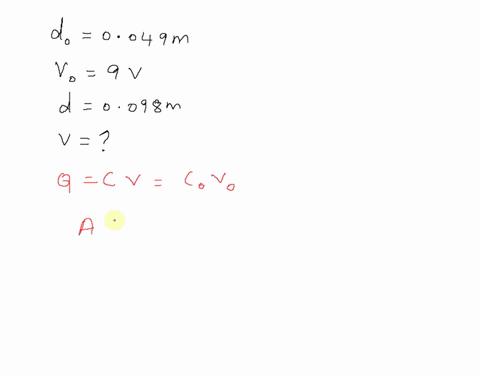 d₀ = 0.049m
V₀ = 9 V
d = 0.098m
V = ?
Q = C V = C₀ V₀
A